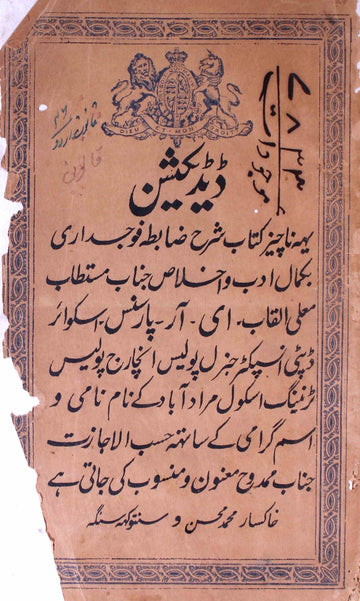 DIEU ET MON DROIT
ڈیڈیکیشن
یہہ ناچیز کتاب شرح ضابطہ فوجداری
بکمال ادب و اخلاص جناب مستطاب
معلی القاب۔ ای۔ آر۔ پارسنس۔ اسکوائر
ڈپٹی انسپکٹر جنرل پولیس انچارج پولیس
ٹرننگ اسکول مراد آباد کے نام نامی و
اسم گرامی کے ساتھہ حسب الاجازت
جناب ممدوح معنون و منسوب کی جاتی ہے
خاکسار محمد محسن و سنتوکہہ سنگہ
قانون